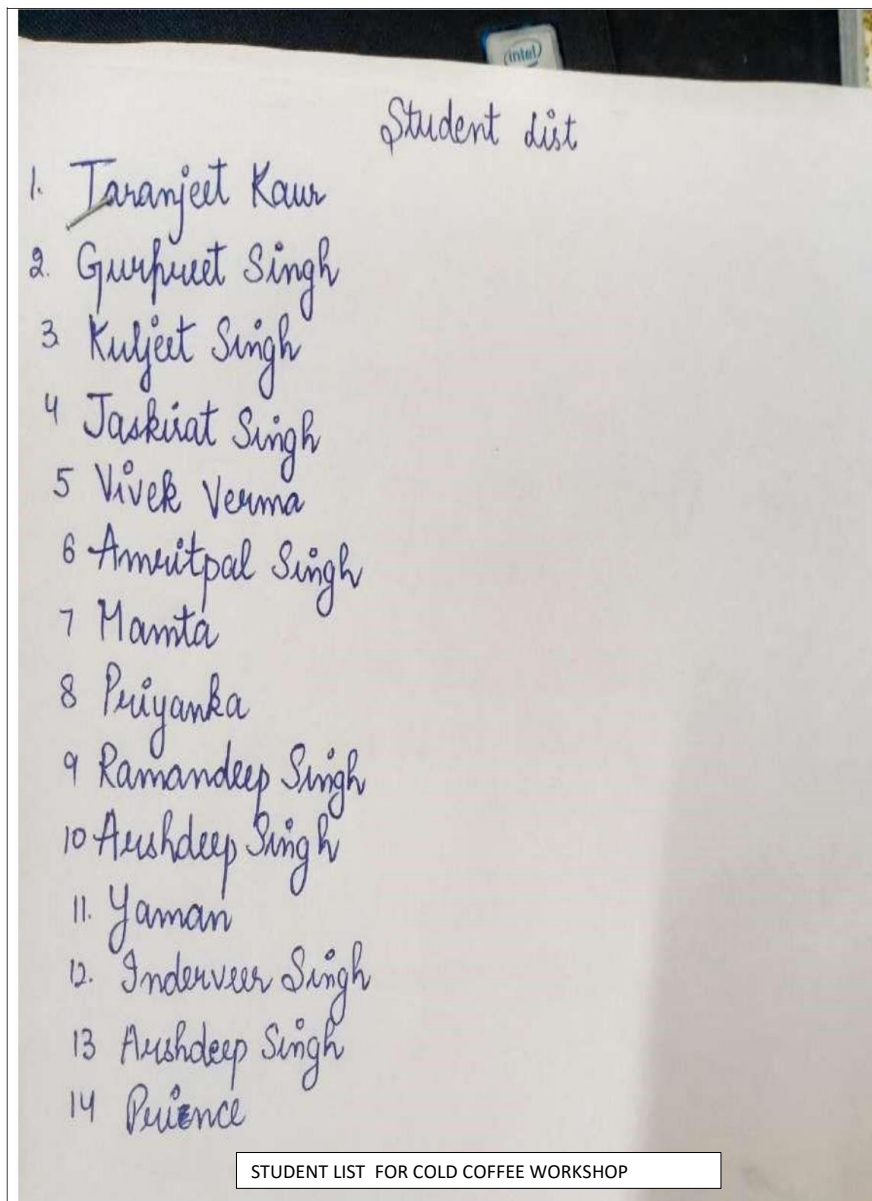 intel
Student List
1. Taranjeet Kaur
2. Gurpreet Singh
3 Kuljeet Singh
4 Jaskirat Singh
5 Vivek Verma
6 Amritpal Singh
7 Mamta
8 Priyanka
9 Ramandeep Singh
10 Arshdeep Singh
11. Yaman
12. Inderveer Singh
13 Arshdeep Singh
14 Prience
STUDENT LIST FOR COLD COFFEE WORKSHOP